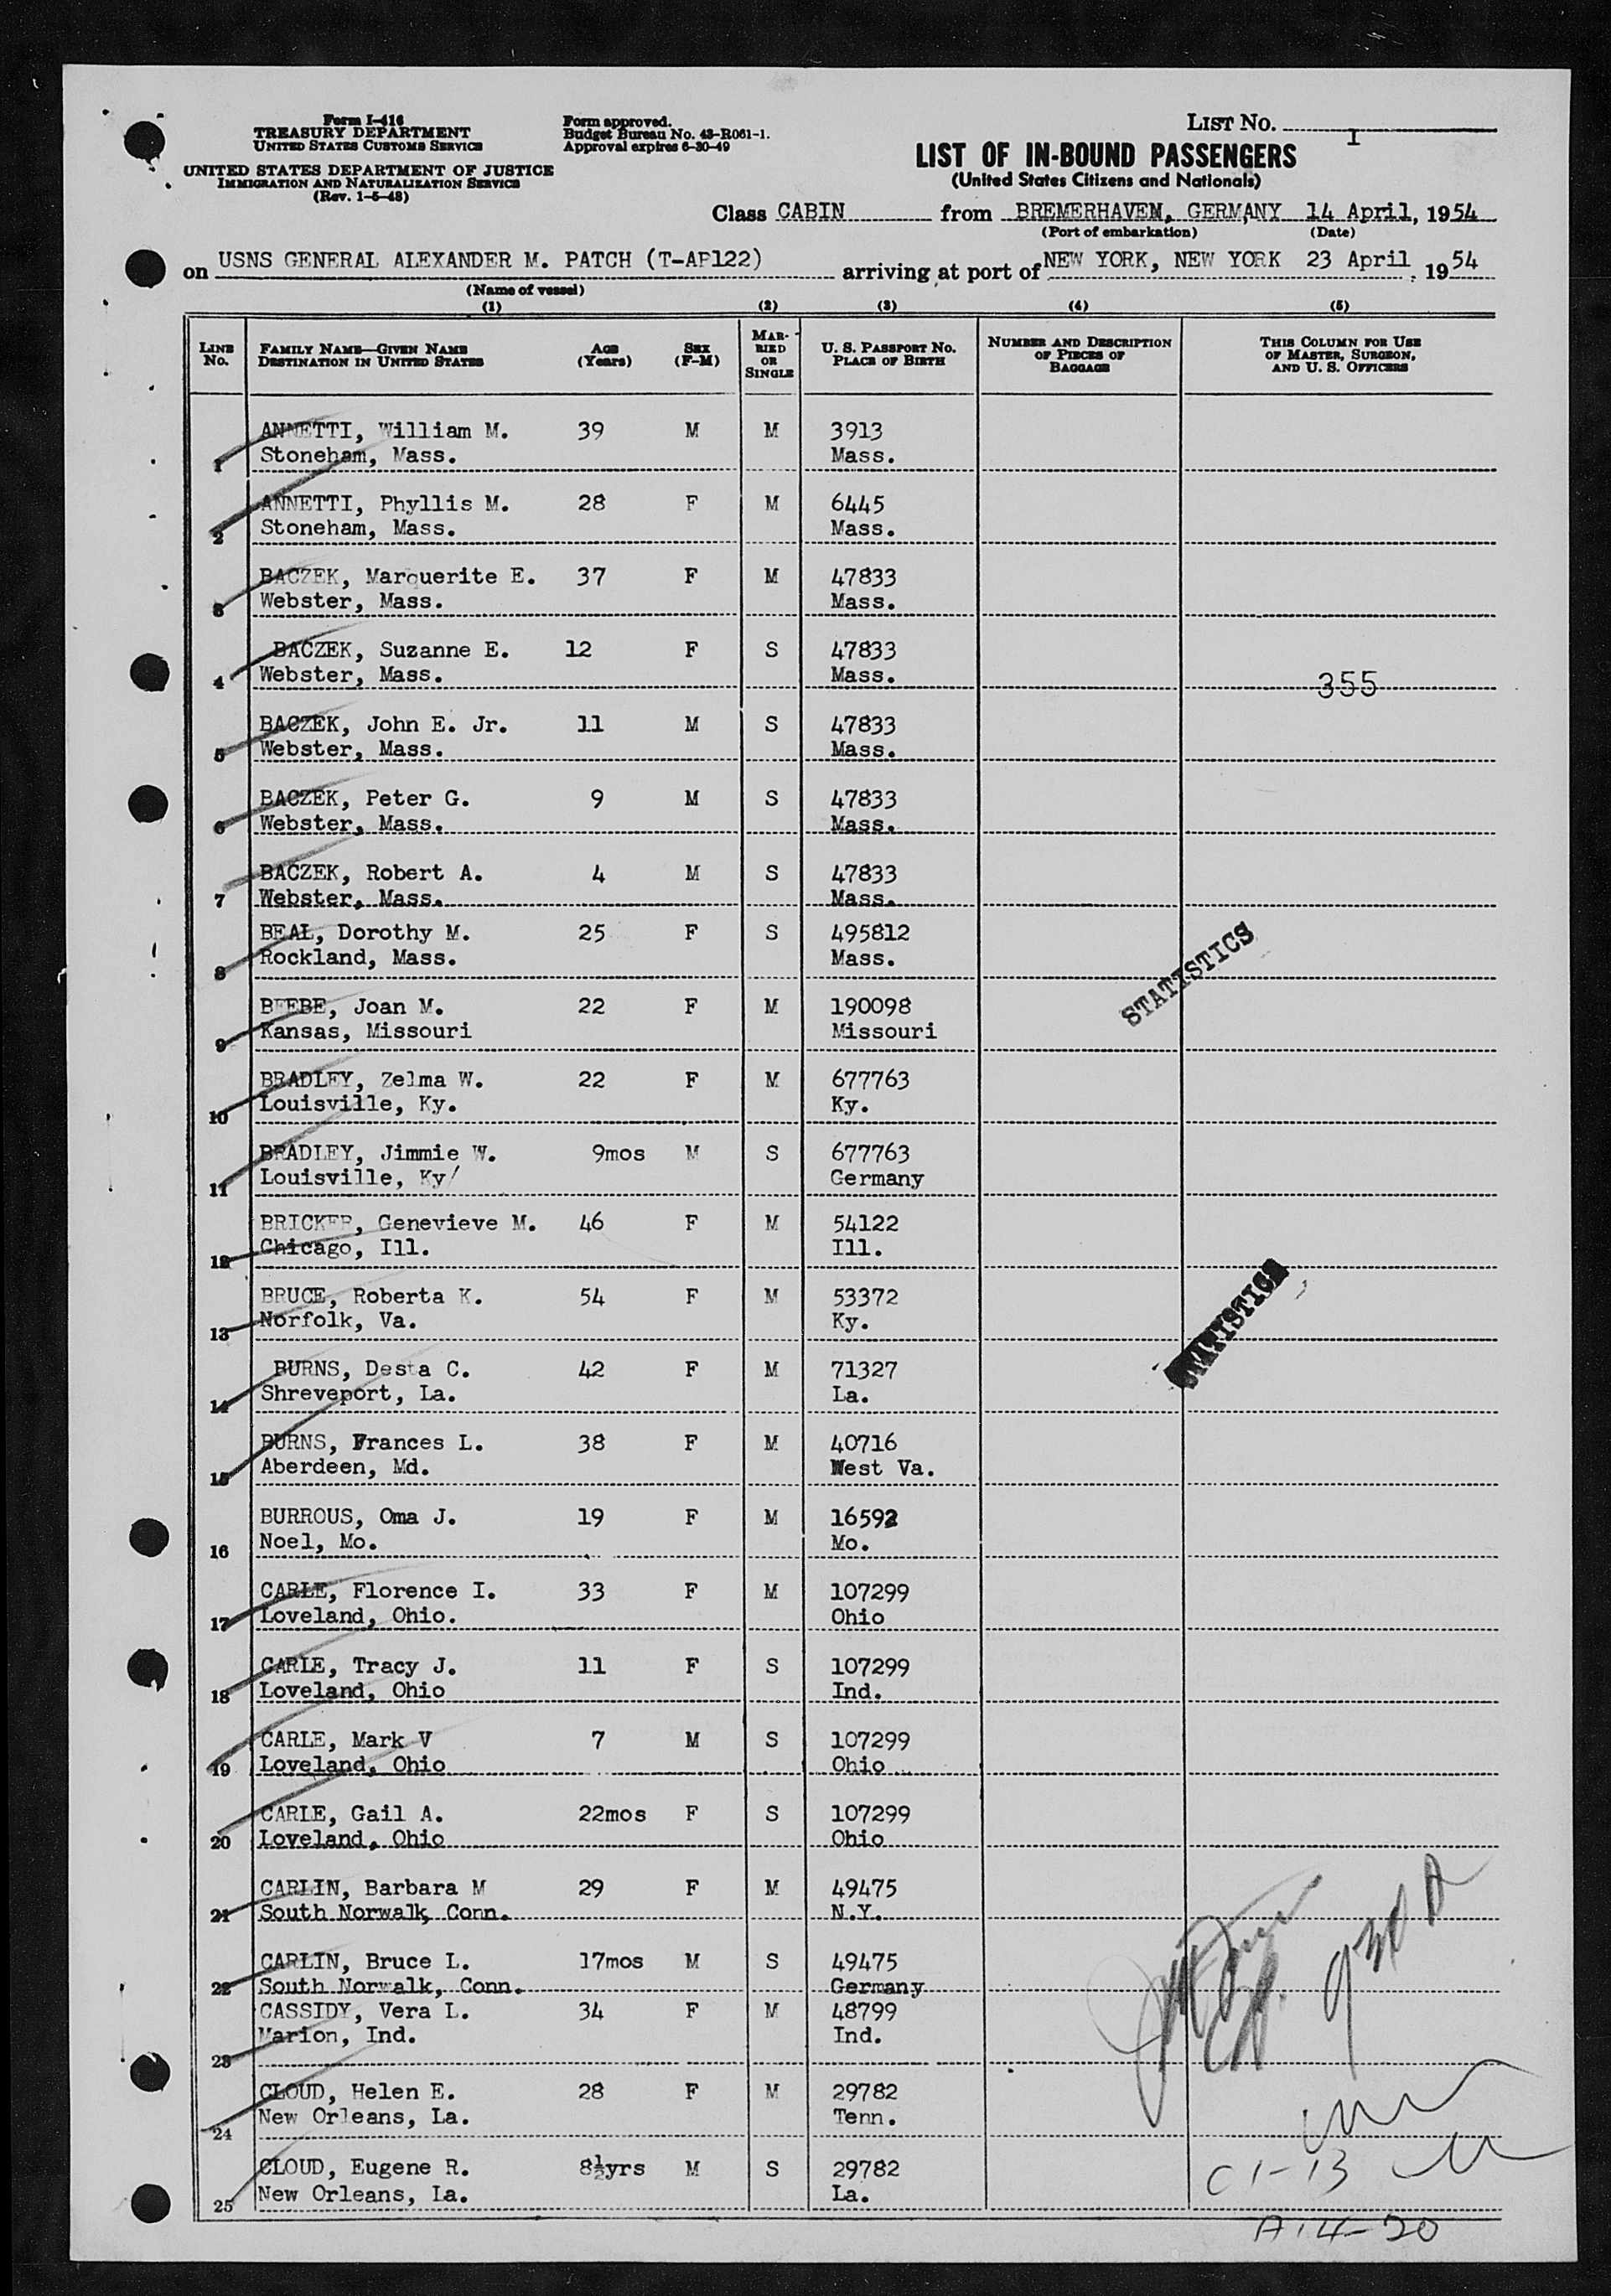 Form I-416
TREASURY DEPARTMENT
UNITED STATES CUSTOMS SERVICE
UNITED STATES DEPARTMENT OF JUSTICE
IMMIGRATION AND NATURALIZATION SERVICE
(Rev. 1-5-48)
Form approved.
Budget Bureau No. 43-R061-1.
Approval expires 6-30-49
LIST NO. I
LIST OF IN-BOUND PASSENGERS
(United States Citizens and Nationals)
Class CABIN from BREMERHAVEN, GERMANY 14 April, 1954
(Port of embarkation) (Date)
on USNS GENERAL ALEXANDER M. PATCH (T-AP122) arriving at port of NEW YORK, NEW YORK 23 April, 1954
(Name of vessel)
(1) (2) (3) (4) (5)
LINE NO.
FAMILY NAME—GIVEN NAME
DESTINATION IN UNITED STATES
AGE (Years)
SEX (F-M)
MARRIED OR SINGLE
U. S. PASSPORT NO.
PLACE OF BIRTH
NUMBER AND DESCRIPTION OF PIECES OF BAGGAGE
THIS COLUMN FOR USE OF MASTER, SURGEON, AND U. S. OFFICERS
ANNETTI, William M. 39 M M 3913
1 Stoneham, Mass. Mass.
ANNETTI, Phyllis M. 28 F M 6445
2 Stoneham, Mass. Mass.
BACZEK, Marguerite E. 37 F M 47833
3 Webster, Mass. Mass.
BACZEK, Suzanne E. 12 F S 47833
4 Webster, Mass. Mass. 355
BACZEK, John E. Jr. 11 M S 47833
5 Webster, Mass. Mass.
BACZEK, Peter G. 9 M S 47833
6 Webster, Mass. Mass.
BACZEK, Robert A. 4 M S 47833
7 Webster, Mass. Mass.
BEAL, Dorothy M. 25 F S 495812
8 Rockland, Mass. Mass.
STATISTICS
BEEBE, Joan M. 22 F M 190098
9 Kansas, Missouri Missouri
BRADLEY, Zelma W. 22 F M 677763
10 Louisville, Ky. Ky.
BRADLEY, Jimmie W. 9mos M S 677763
11 Louisville, Ky/ Germany
BRICKER, Genevieve M. 46 F M 54122
12 Chicago, Ill. Ill.
BRUCE, Roberta K. 54 F M 53372
13 Norfolk, Va. Ky.
STATISTICS
BURNS, Desta C. 42 F M 71327
14 Shreveport, La. La.
BURNS, Frances L. 38 F M 40716
15 Aberdeen, Md. West Va.
BURROUS, Oma J. 19 F M 16592
16 Noel, Mo. Mo.
CARLE, Florence I. 33 F M 107299
17 Loveland, Ohio. Ohio
CARLE, Tracy J. 11 F S 107299
18 Loveland, Ohio Ind.
CARLE, Mark V 7 M S 107299
19 Loveland, Ohio Ohio
CARLE, Gail A. 22mos F S 107299
20 Loveland, Ohio Ohio
CARLIN, Barbara M 29 F M 49475
21 South Norwalk, Conn. N.Y.
CARLIN, Bruce L. 17mos M S 49475
22 South Norwalk, Conn. Germany
CASSIDY, Vera L. 34 F M 48799
23 Marion, Ind. Ind.
CLOUD, Helen E. 28 F M 29782
24 New Orleans, La. Tenn.
CLOUD, Eugene R. 8½yrs M S 29782
25 New Orleans, La. La.
C 1-13
A 14-20